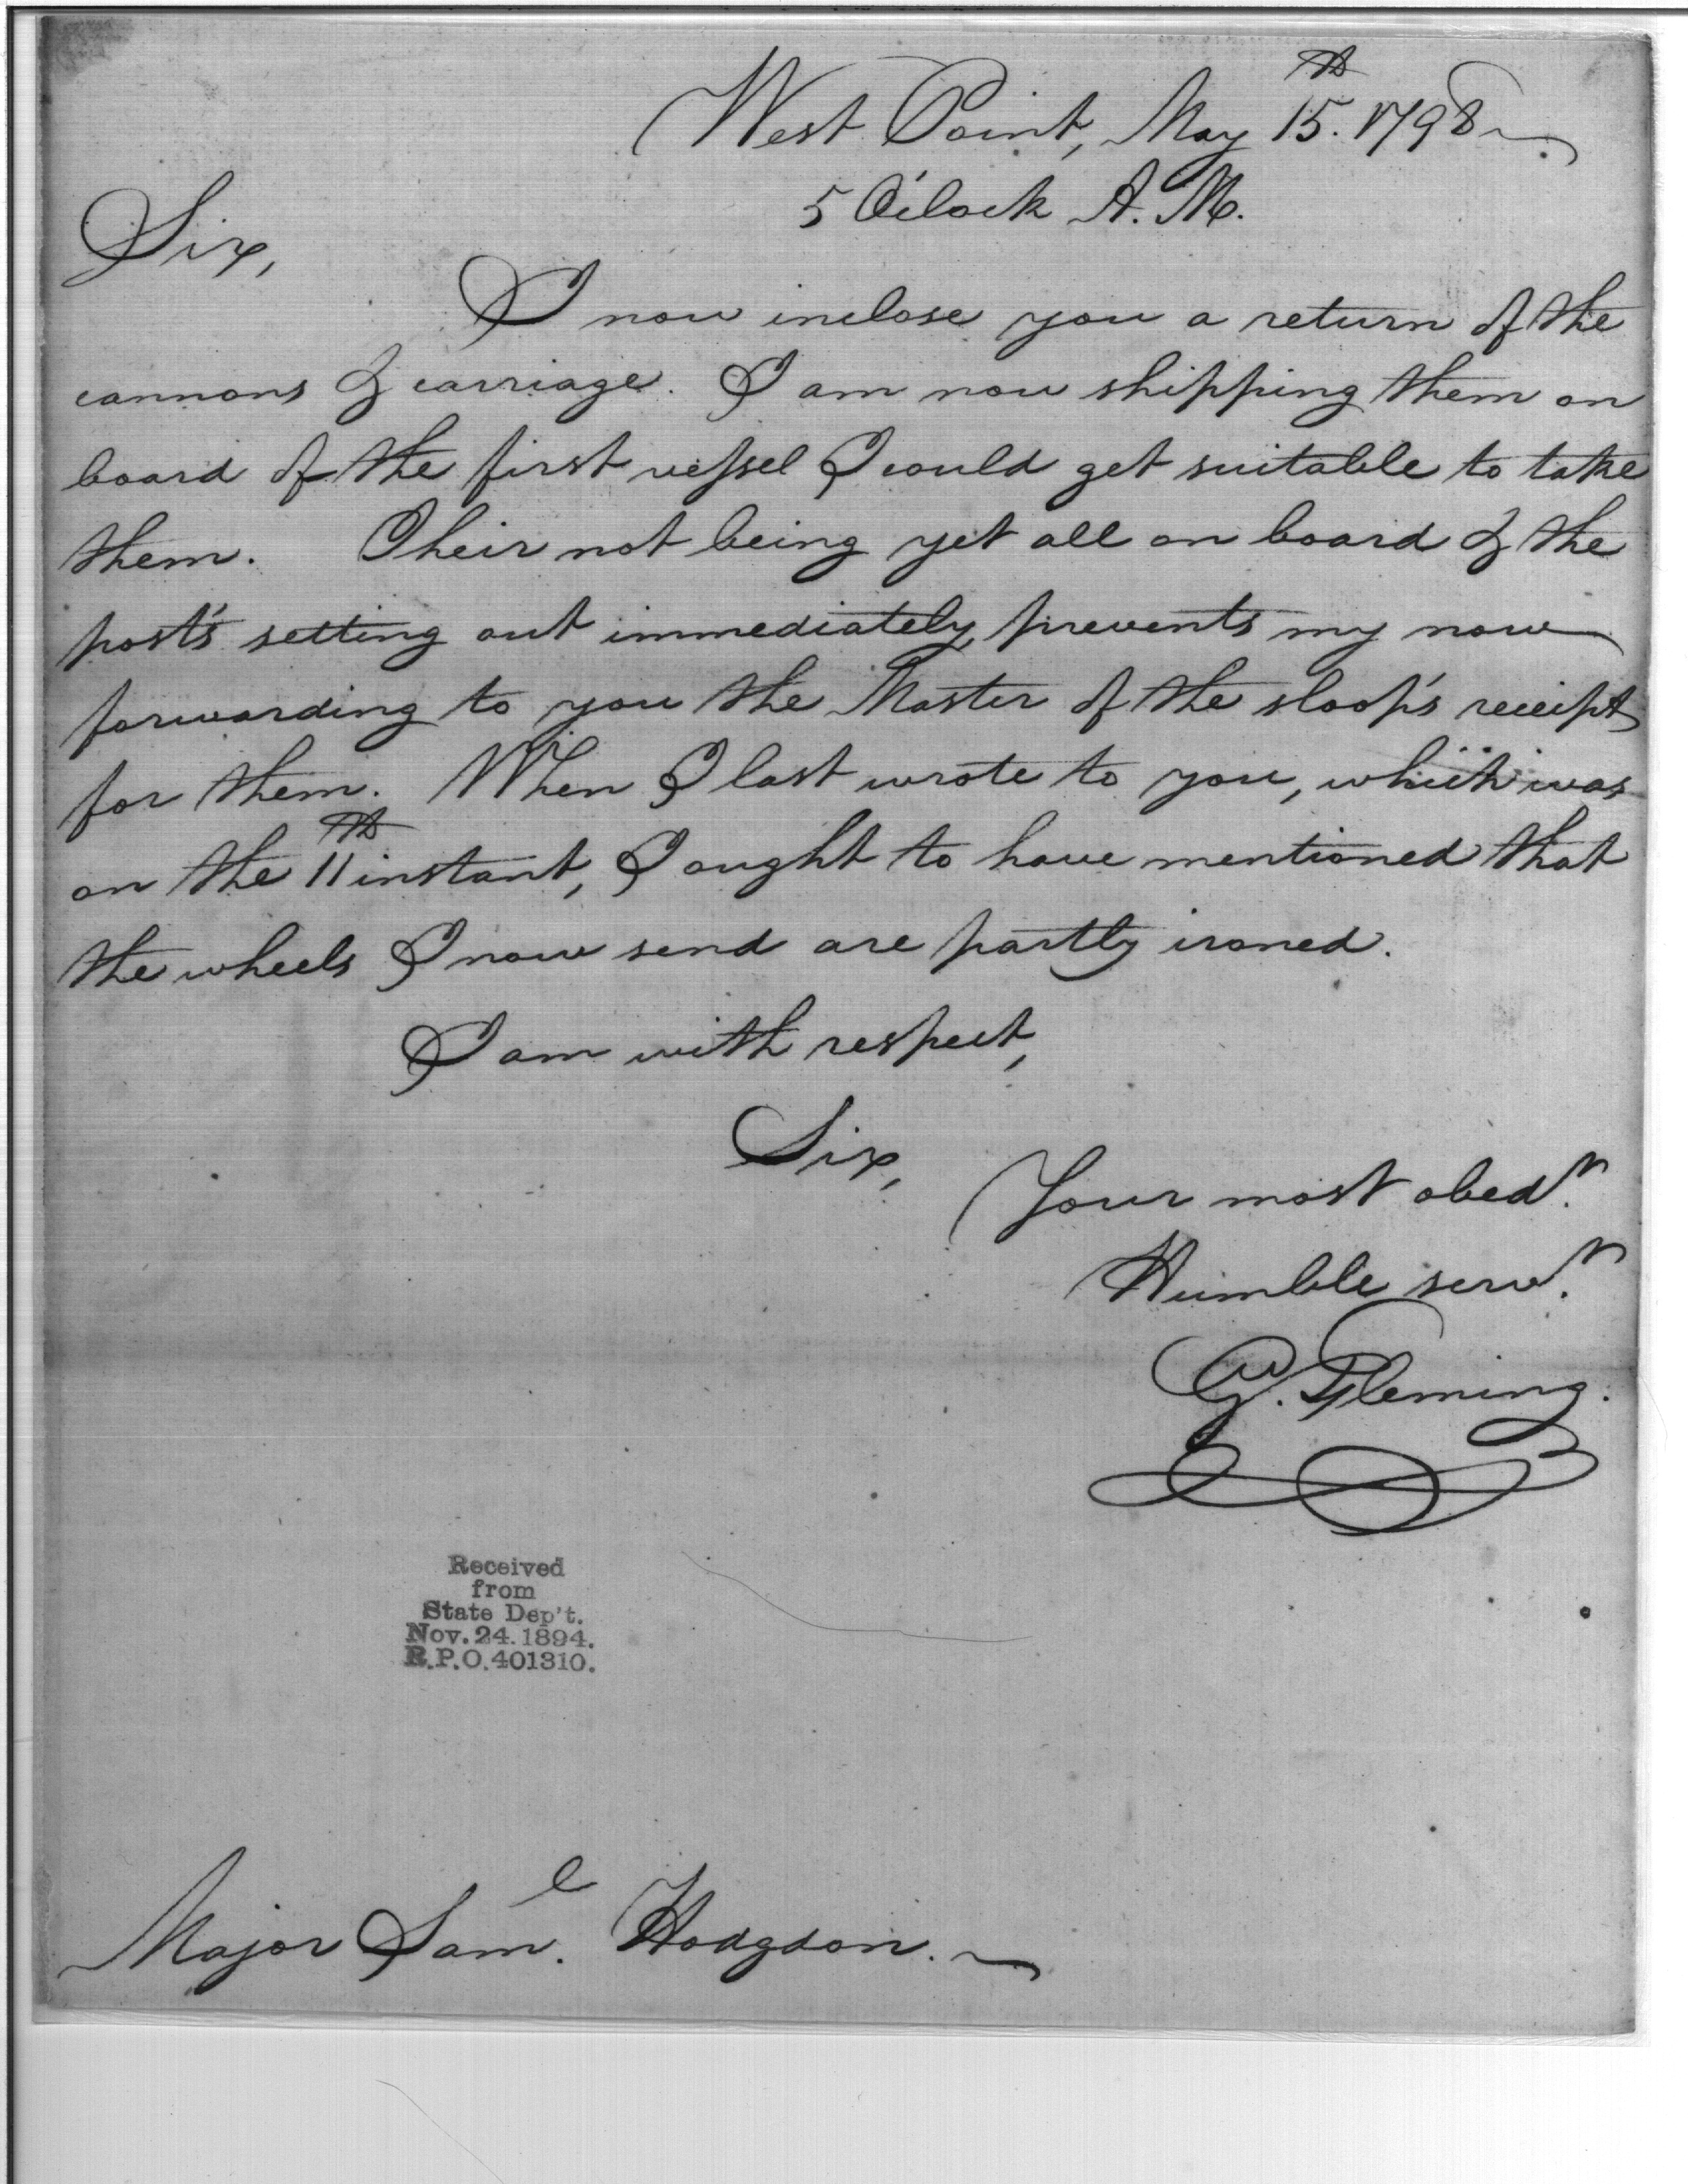 West Point, May 15th. 1798
5 O'Clock A.M.
Sir,
I now inclose you a return of the
cannons & carriage. I am now shipping them on
board of the first vessel I could get suitable to take
them. Their not being yet all on board & the
post's setting out immediately, prevents my now
forwarding to you the Master of the sloop's receipt
for them. When I last wrote to you, which was
on the 11th instant, I ought to have mentioned that
the wheels I now send are partly ironed.
I am with respect,
Sir,
Your most obedt.
Humble servt.
G. Fleming.
Received
from
State Dep't.
Nov. 24. 1894.
R.P.O. 401310.
Major Saml. Hodgdon.